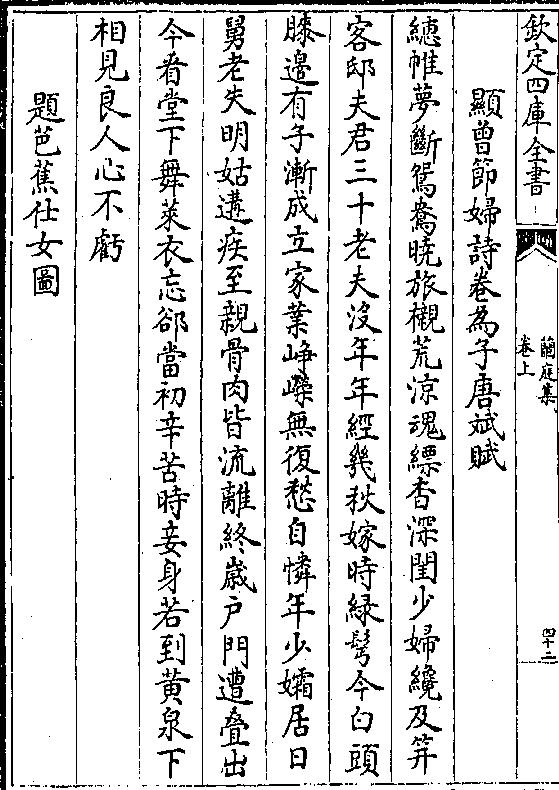 欽定四庫全書
蘭庭集
卷上
四十二
顯曾節婦詩卷為子唐斌賦
繐帷夢斷鴛鴦曉旅櫬荒涼魂縹杳深閨少婦纔及笄
客邸夫君三十老夫沒年年經幾秋嫁時緑鬢今白頭
膝邊有子漸成立家業崢嶸無復愁自憐年少孀居日
舅老失明姑遘疾至親骨肉皆流離終嵗户門遭叠出
今看堂下舞萊衣忘郤當初辛苦時妾身若到黄泉下
相見良人心不虧
題芭蕉仕女圖